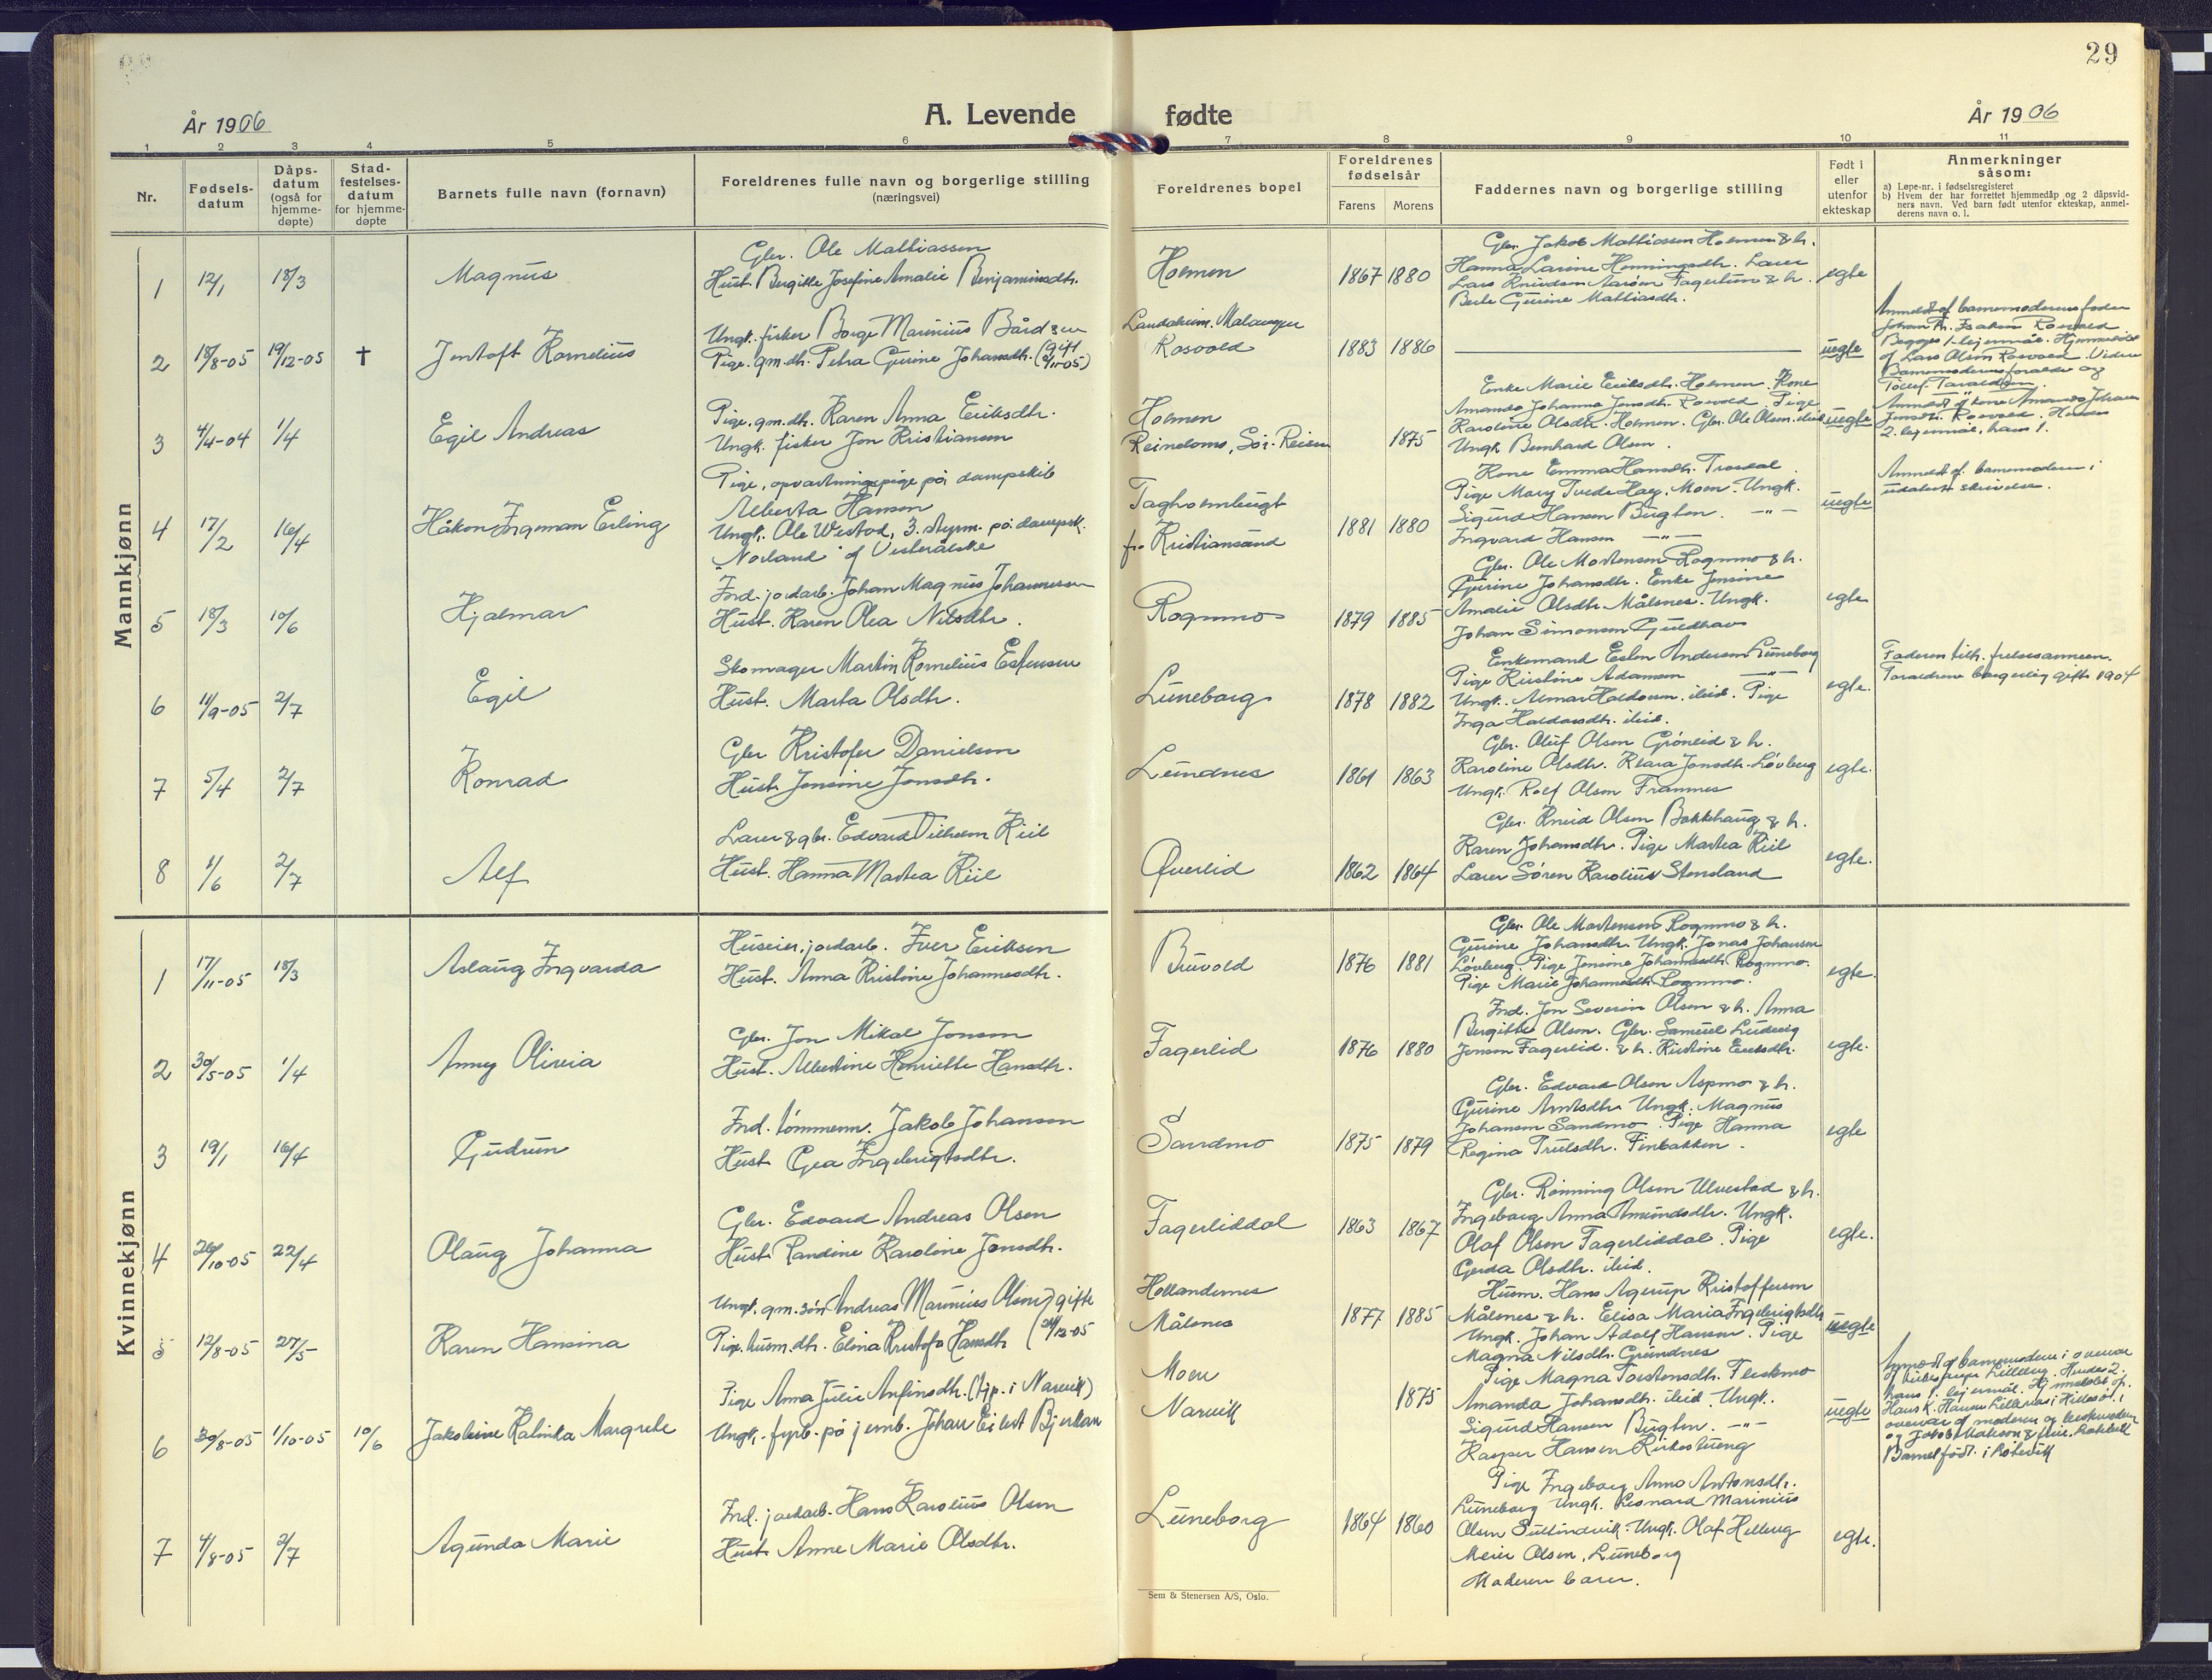 29
År 1906
A. Levende fødte
År 1906
1 2 3 4 5 6 7 8 9 10 11
Nr.
Fødsels-
datum
Dåps-
datum
(også for
hjemme-
døpte)
Stad-
festelses-
datum
for hjemme-
døpte
Barnets fulle navn (fornavn)
Foreldrenes fulle navn og borgerlige stilling
(næringsvei)
Foreldrenes bopel
Foreldrenes
fødselsår
Farens Morens
Faddernes navn og borgerlige stilling
Født i
eller
utenfor
ekteskap
Anmerkninger
såsom:
a) Løpe-nr. i fødselsregisteret
b) Hvem der har forrettet hjemmedåp og 2 dåpsvid-
ners navn. Ved barn født utenfor ekteskap, anmel-
derens navn o. l.
Mannkjønn
1 12/1 18/3 Magnus
Gbr. Ole Mathiassen
Hust. Bergitte Josefine Amalie Benjaminsdtr.
Holmen 1867 1880
Gbr. Jakob Mathiassen Holmen & h.
Hanna Larine Henningsdtr. Lærer
Lars Knudsen Aarøen Fagertun & h.
Berle Gurine Mathiasdtr.
egte
2 18/8-05 19/12-05 † Jentoft Kornelius
Ungk. fisker Borge Marinius Bårdsen
Pige. gm.dtr. Petra Gurine Johansdtr. (gift /11-05)
Malangen
Rosvold 1883 1886
uegte
Anmeldt af barnemoderens fader
Johan Rosvold
Begges 1. lejermål. Hjemmedøbt
af Lars Olsen Rosvold. Vidner
Barnemoderens forældre og
3 4/4-04 1/4 Egil Andreas
Pige. gm.dtr. Karen Anna Eriksdtr.
Ungk. fisker Jon Kristiansen
Holmen
Sör-Reisen 1875
Enke Marie Eriksdtr. Holmen. Kone
Amanda Johanna Jensdtr. Rosvold. Pige
Karoline Olsdtr. Holmen. Gbr. Ole Olsen. ibid
Ungk. Bernhard Olsen.
uegte
Anmeldt af kone Amanda Johanna
Jensdtr. Rosvold. Hendes
2. lejermål, hans 1.
4 17/2 16/4 Håkon Ingeman Erling
Pige, opvartningspige på dampskib
Alberta Hansen
Ungk. Ole Westad, 3. styrm. på dampsk.
"Norland" af Vesterålske
Tagholmbugt
fr. Kristiansand 1881 1880
Kone Emma Hansdtr. Trosdal
Pige Mary Tvede Hay, Moen. Ungk.
Sigurd Hansen Bugten. —"—
Ingvard Hansen —"—
uegte
Anmeldt af barnemoderen i
udateret skrivelse.
5 18/3 10/6 Hjalmar
Ind. jordarb. Johan Magnus Johannessen
Hust. Karen Olea Nilsdtr.
Rognmo 1879 1885
Gbr. Ole Mortensen Rognmo & h.
Gurine Johansdtr. Enke Jensine
Amalie Olsdtr. Målsnes. Ungk.
Johan Simonsen Guldhav
egte
6 11/9-05 2/7 Egil
Skomager Martin Kornelius Estensen
Hust. Marta Olsdtr.
Luneborg 1878 1882
Enkemand Esten Andersen Luneborg
Pige Kristine Adamsen —"—
Ungk. Almar Haldorsen, ibid. Pige
Inga Haldorsdtr. ibid.
egte.
Faderen tilh. frelsesarmeen.
Forældrene borgerlig gift 1904
7 5/4 2/7 Konrad
Gbr Kristofer Danielsen
Hust. Jensine Jonsdtr.
Lundnes 1861 1863
Gbr. Oluf Olsen Grönlid & h.
Karoline Olsdtr. Klara Jonsdtr. Løvberg
Ungk. Rolf Olsen Framnes
egte.
8 1/6 2/7 Alf
Lærer & gbr. Edvard Vilhelm Kiil
Hust. Hanna Martea Kiil
Øverlid 1862 1864
Gbr. Knud Olsen Bakkehaug & h.
Karen Johansdtr. Pige Martea Kiil
Lærer Søren Karolius Stensland
egte.
Kvinnekjønn
1 17/11-05 18/3 Aslaug Ingvarda
Huseier, jordarb. Iver Eriksen
Hust. Anna Kristine Johannesdtr.
Buvold 1876 1881
Gbr. Ole Mortensen Rognmo & h.
Gurine Johansdtr. Ungk. Jonas Johansen
Løvberg. Pige Jensine Johannesdtr. Rognmo.
Pige Marie Johannesdtr. Rognmo.
egte.
2 30/5-05 1/4 Anny Olivia
Gbr. Jon Mikal Jonsen
Hust. Albertine Henriette Hansdtr.
Fagerlid 1876 1880
Ind. Jon Severin Olsen & h. Anna
Bergitte Olsen. Gbr. Samuel Ludvig
Jonsen Fagerlid. & h. Kristine Eriksdtr.
egte.
3 19/1 16/4 Gudrun
Ind. tømmerm. Jakob Johansen
Hust. Gea Ingebrigtsdtr.
Sandmo 1875 1879
Gbr. Edvard Olsen Aspmo & h.
Gurine Arntsdtr. Ungk. Magnus
Johansen Sandmo. Pige Hanna
Regina Trulsdtr. Finbakken.
egte
4 26/10-05 22/4 Olaug Johanna
Gbr. Edvard Andreas Olsen
Hust. Randine Karoline Jonsdtr.
Fagerliddal 1863 1867
Gbr. Rønning Olsen Ulvestad & h.
Ingeborg Anna Amundsdtr. Ungk.
Olaf Olsen Fagerliddal. Pige
Gerda Olsdtr. ibid.
egte.
5 12/8-05 27/5 Karen Hansina
Ungk. gm.sön Andreas Marinius Olsen } gifte
Pige. husm.dtr. Elina Kristofa Hansdtr ( /12-05
Hollandernes
Målsnes 1877 1885
Husm. Hans Agerup Kristoffersen
Målsnes & h. Elisa Maria Ingebrigtsdtr
Ungk. Johan Adolf Hansen. Pige
Magna Nilsdtr. Grundnes
uegte
6 30/8-05 1/10-05 10/6 Jakobine Kalinka Margrete
Pige Anna Julie Anfinsdtr. (tjp. i Narvik)
Ungk. fyrb. på jernb. Johan Eilert Bjerkan
Moen
Narvik 1875
Pige Magna Torstensdtr. Fleskmo
Amanda Johansdtr. ibid. Ungk.
Sigurd Hansen Bugten. —"—
Kasper Hansen Kirkestueng
uegte
Hendes 2.
hans 1. lejermål.
Barnet født i
7 4/8-05 2/7 Agunda Marie
Ind. jordarb. Hans Karolius Olsen
Hust. Anne Marie Olsdtr.
Luneborg 1864 1860
Pige Ingeborg Anna Antonsdtr.
Luneborg Ungk. Leonard Marinius
Olsen Sultindvik. Ungk. Olaf Helleug
Meier Olsen, Luneborg
Moderen barer.
egte.
Sem & Stenersen A/S, Oslo.